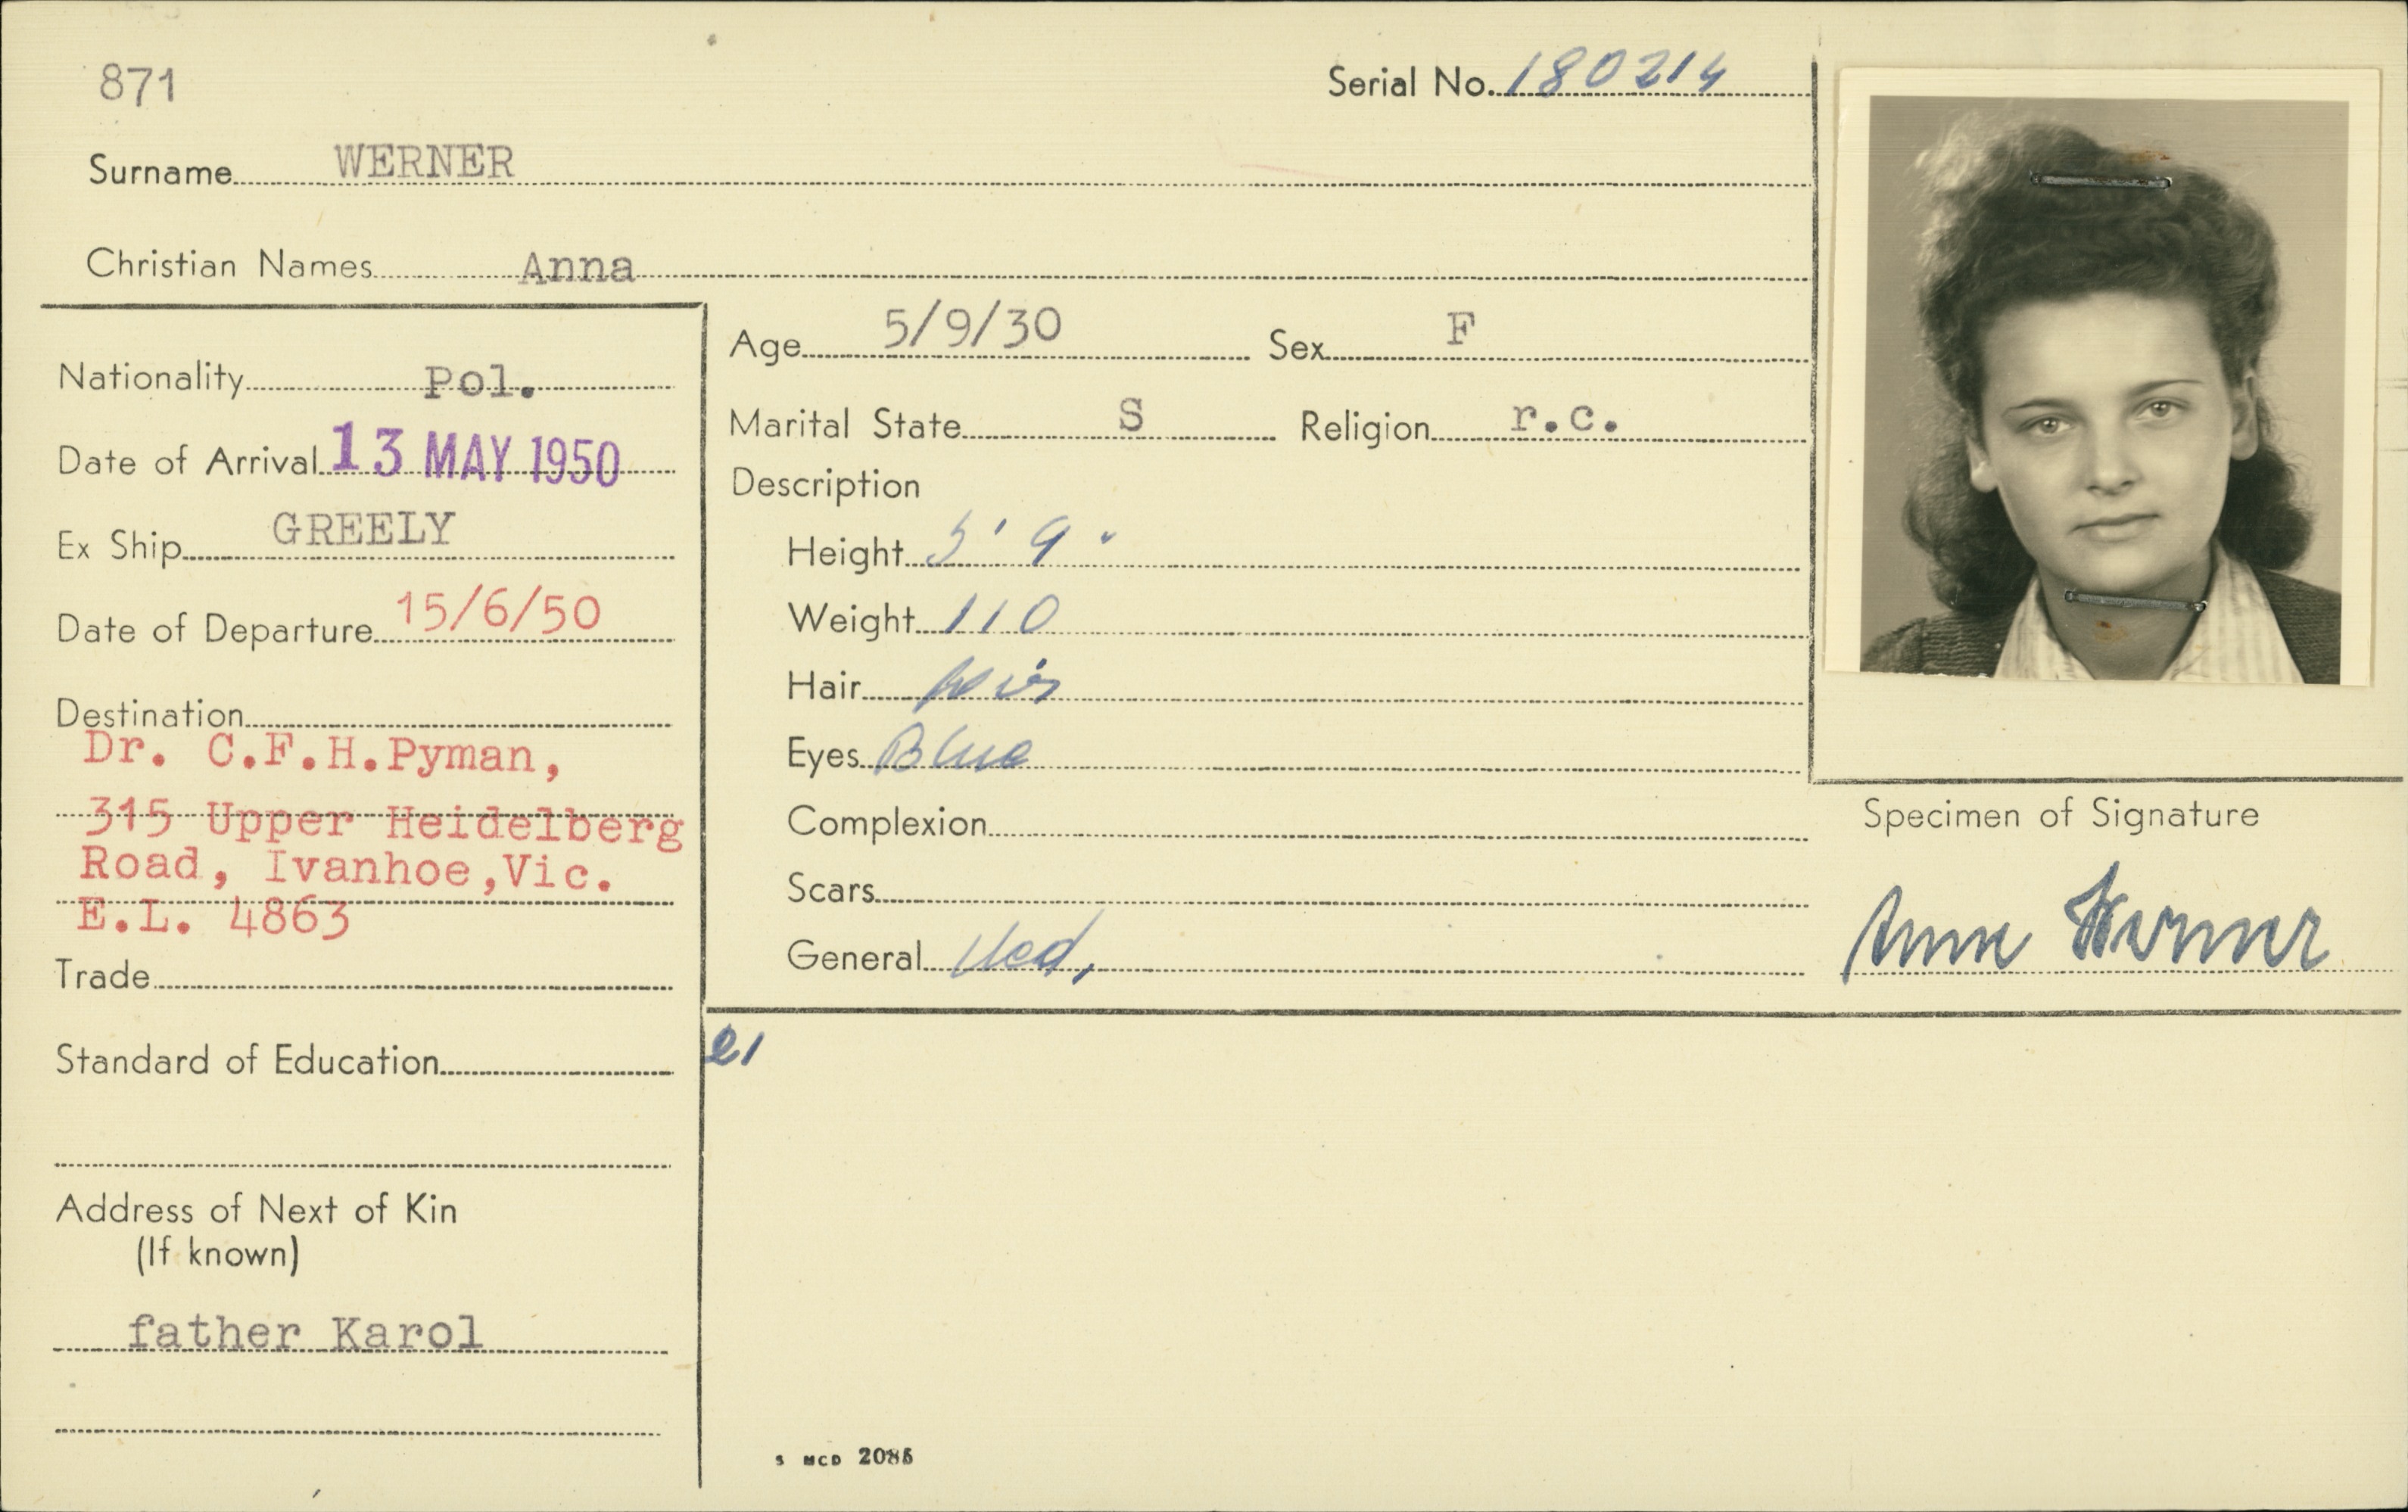 871
Serial No. 180214
Surname WERNER
Christian Names Anna
Nationality Pol.
Date of Arrival 13 MAY 1950
Ex Ship GREELY
Date of Departure 15/6/50
Destination
Dr. C.F.H.Pyman,
315 Upper Heidelberg
Road, Ivanhoe,Vic.
E.L. 4863
Trade
Standard of Education
Address of Next of Kin
(If known)
father Karol
Age 5/9/30 Sex F
Marital State S Religion r.c.
Description
Height 5' 9"
Weight 110
Hair
Eyes Blue
Complexion
Scars
General
Specimen of Signature
Anna Werner
21
S MCD 2086